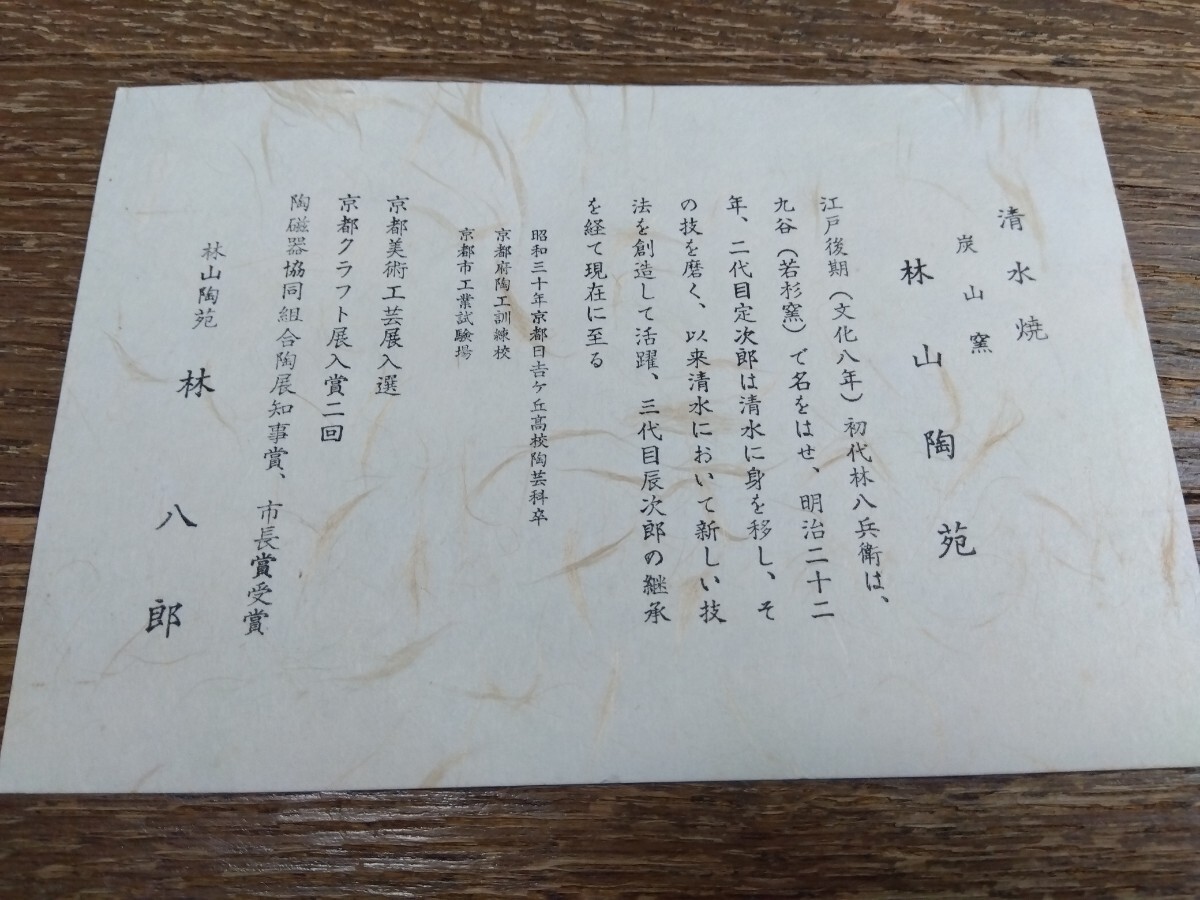 清水焼
炭山窯
林山陶苑
江戸後期（文化八年）初代林八兵衛は、
九谷（若杉窯）で名をはせ、明治二十二
年、二代目定次郎は清水に身を移し、そ
の技を磨く、以来清水において新しい技
法を創造して活躍、三代目辰次郎の継承
を経て現在に至る
昭和三十年京都日吉ケ丘高校陶芸科卒
京都府陶工訓練校
京都市工業試験場
京都美術工芸展入選
京都クラフト展入賞二回
陶磁器協同組合陶展知事賞、市長賞受賞
林山陶苑　林八郎